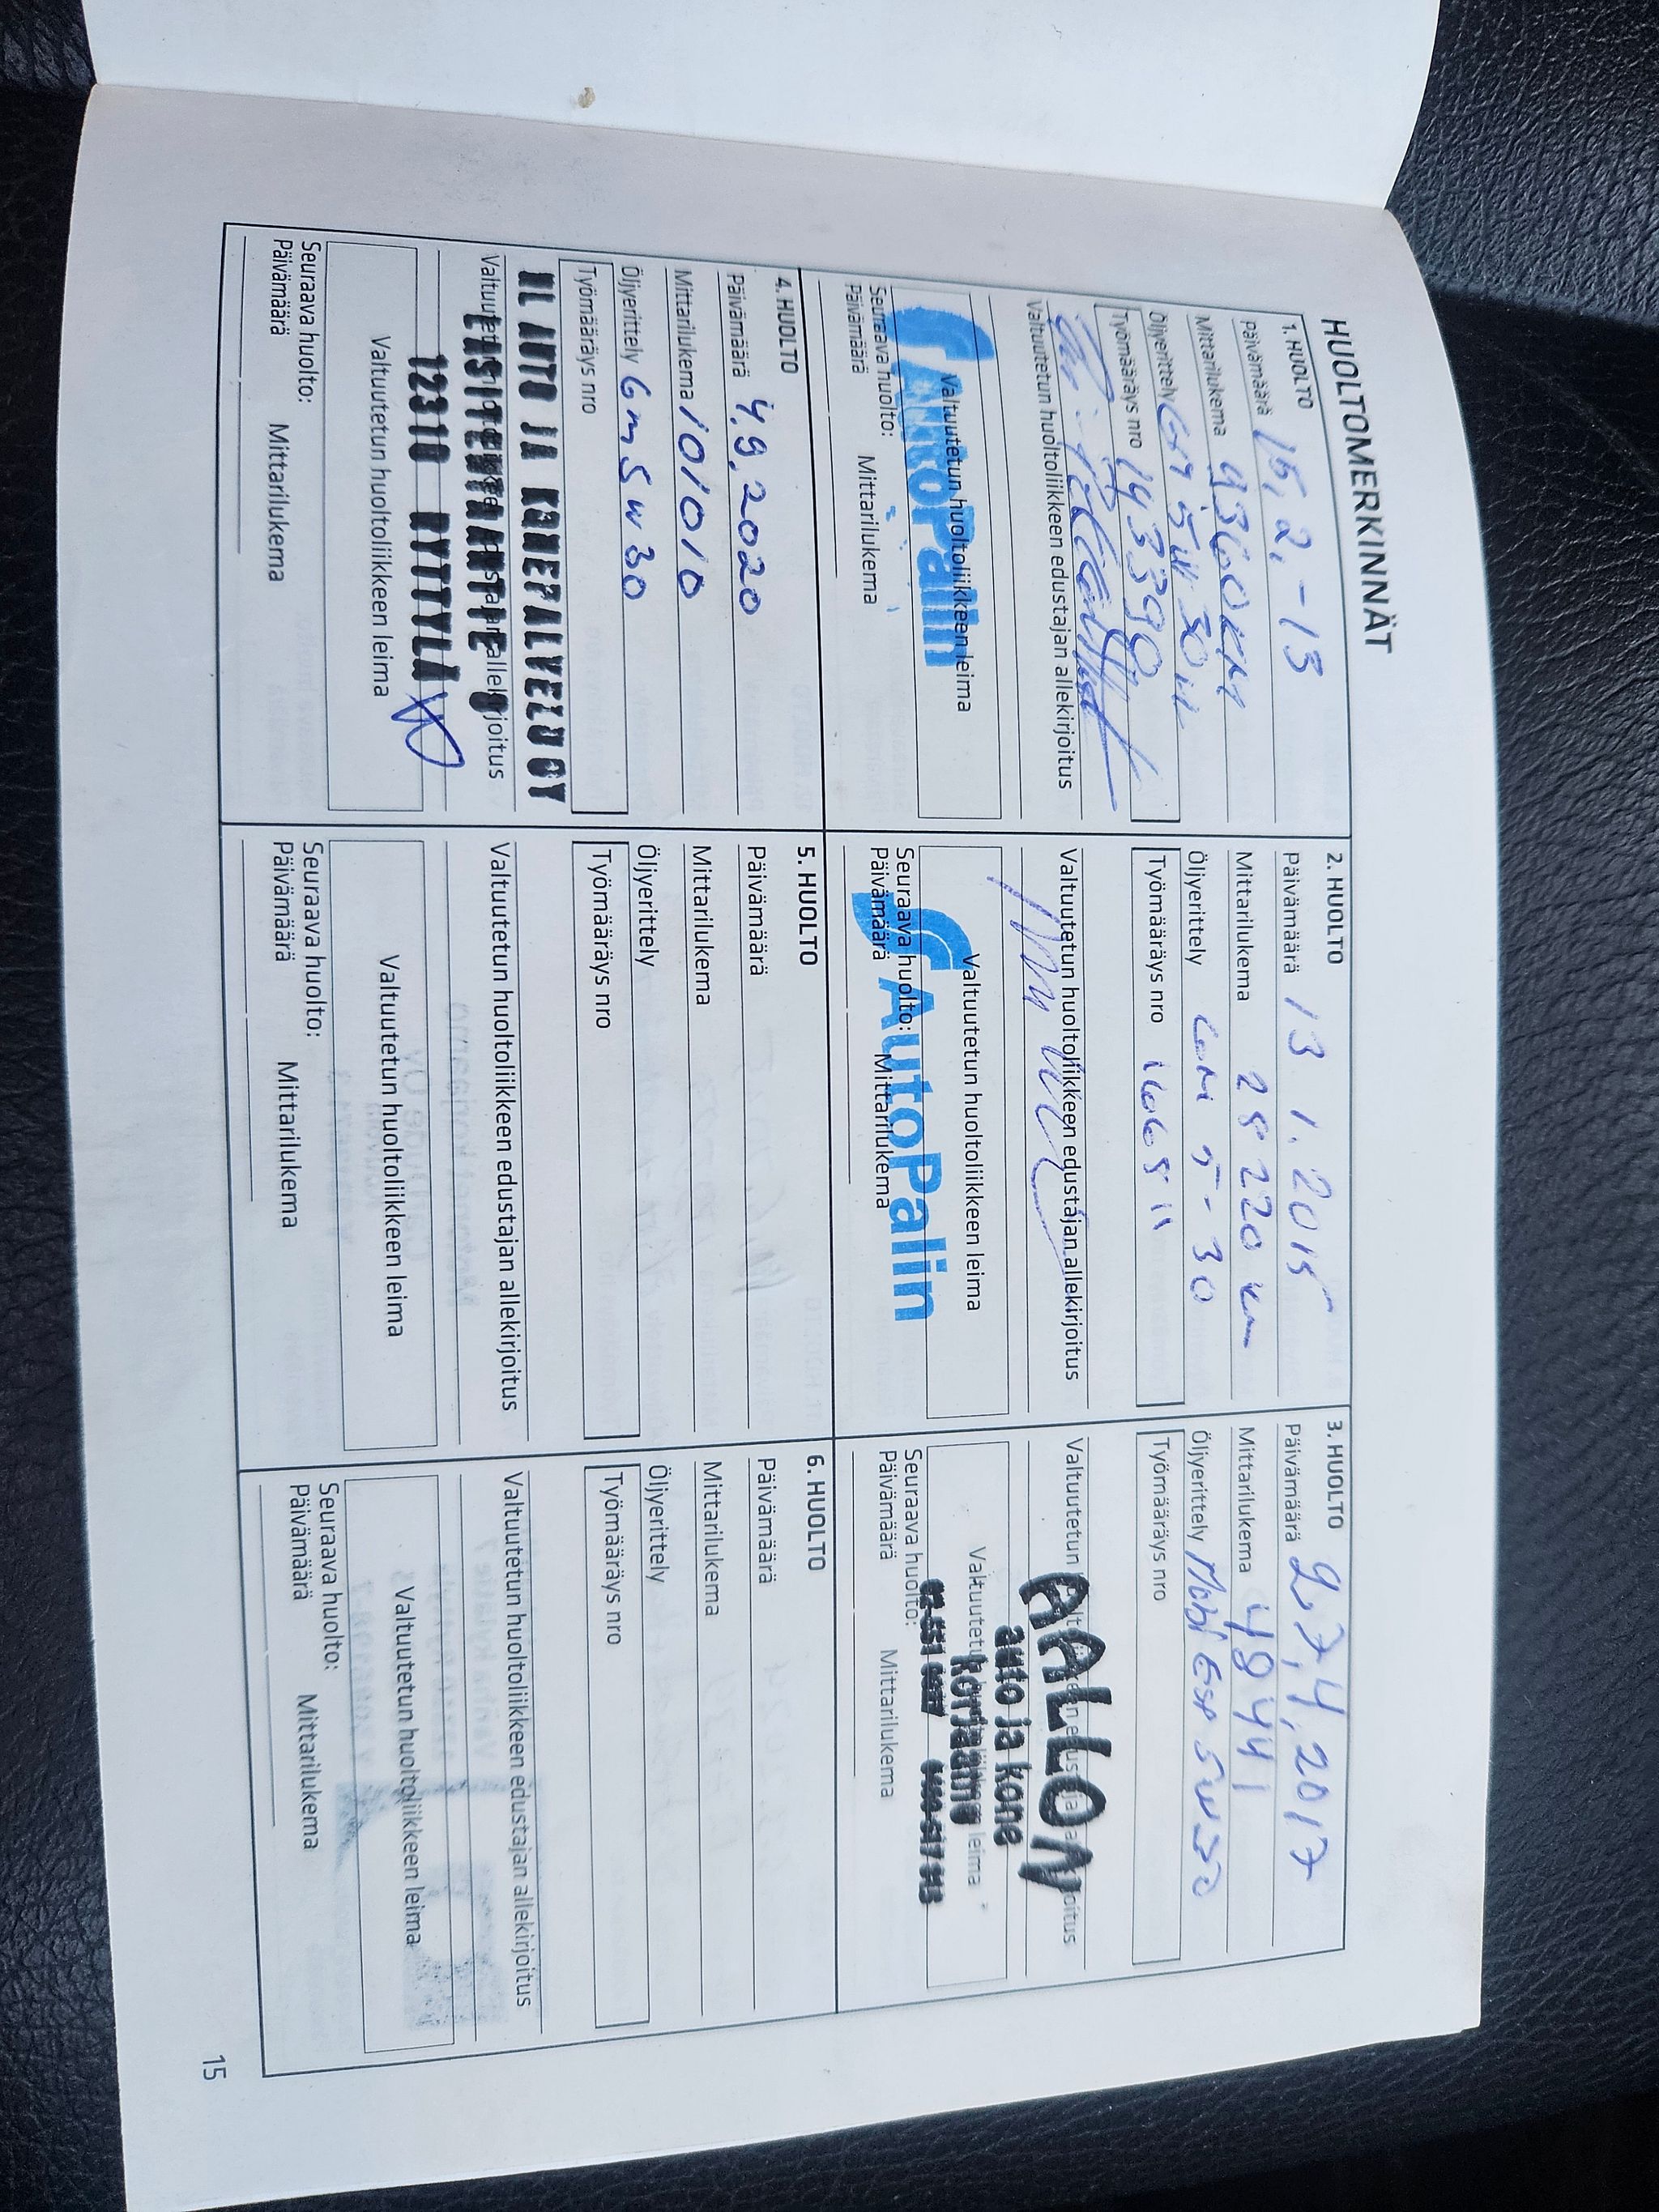 HUOLTOMERKINNÄT
1. HUOLTO
Päivämäärä 15.2.-13
Mittarilukema 9360km
Öljyerittely GM 5W30
Työmääräys nro 143390
Valtuutetun huoltoliikkeen edustajan allekirjoitus
Valtuutetun huoltoliikkeen leima
AutoPalin
Seuraava huolto:
Päivämäärä Mittarilukema
2. HUOLTO
Päivämäärä 13 1. 2015
Mittarilukema 28 220 km
Öljyerittely 5-30
Työmääräys nro
Valtuutetun huoltoliikkeen edustajan allekirjoitus
Valtuutetun huoltoliikkeen leima
AutoPalin
Seuraava huolto:
Päivämäärä Mittarilukema
3. HUOLTO
Päivämäärä 27,4,2017
Mittarilukema 48441
Öljyerittely Mobi Esp 5w30
Työmääräys nro
Valtuutetun
AALLON
auto ja kone
korjaamo
leima
Seuraava huolto:
Päivämäärä Mittarilukema
4. HUOLTO
Päivämäärä 4,9,2020
Mittarilukema 101010
Öljyerittely Gm 5w30
Työmääräys nro
AUTO JA KONEPALVELU OY
12310 RYTTYLÄ
Valtuutetun huoltoliikkeen leima
Seuraava huolto:
Päivämäärä Mittarilukema
5. HUOLTO
Päivämäärä
Mittarilukema
Öljyerittely
Työmääräys nro
Valtuutetun huoltoliikkeen edustajan allekirjoitus
Valtuutetun huoltoliikkeen leima
Seuraava huolto:
Päivämäärä Mittarilukema
6. HUOLTO
Päivämäärä
Mittarilukema
Öljyerittely
Työmääräys nro
Valtuutetun huoltoliikkeen edustajan allekirjoitus
Valtuutetun huoltoliikkeen leima
Seuraava huolto:
Päivämäärä Mittarilukema
15